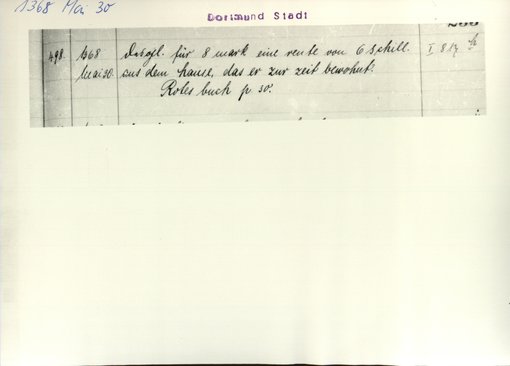 1368 Mai 30
Dortmund Stadt
498. 1368 Desgl. für 8 mark eine rente von 6 schill.
mai 30. aus dem hause, das er zur zeit bewohnt.
Rotes buch p 30.